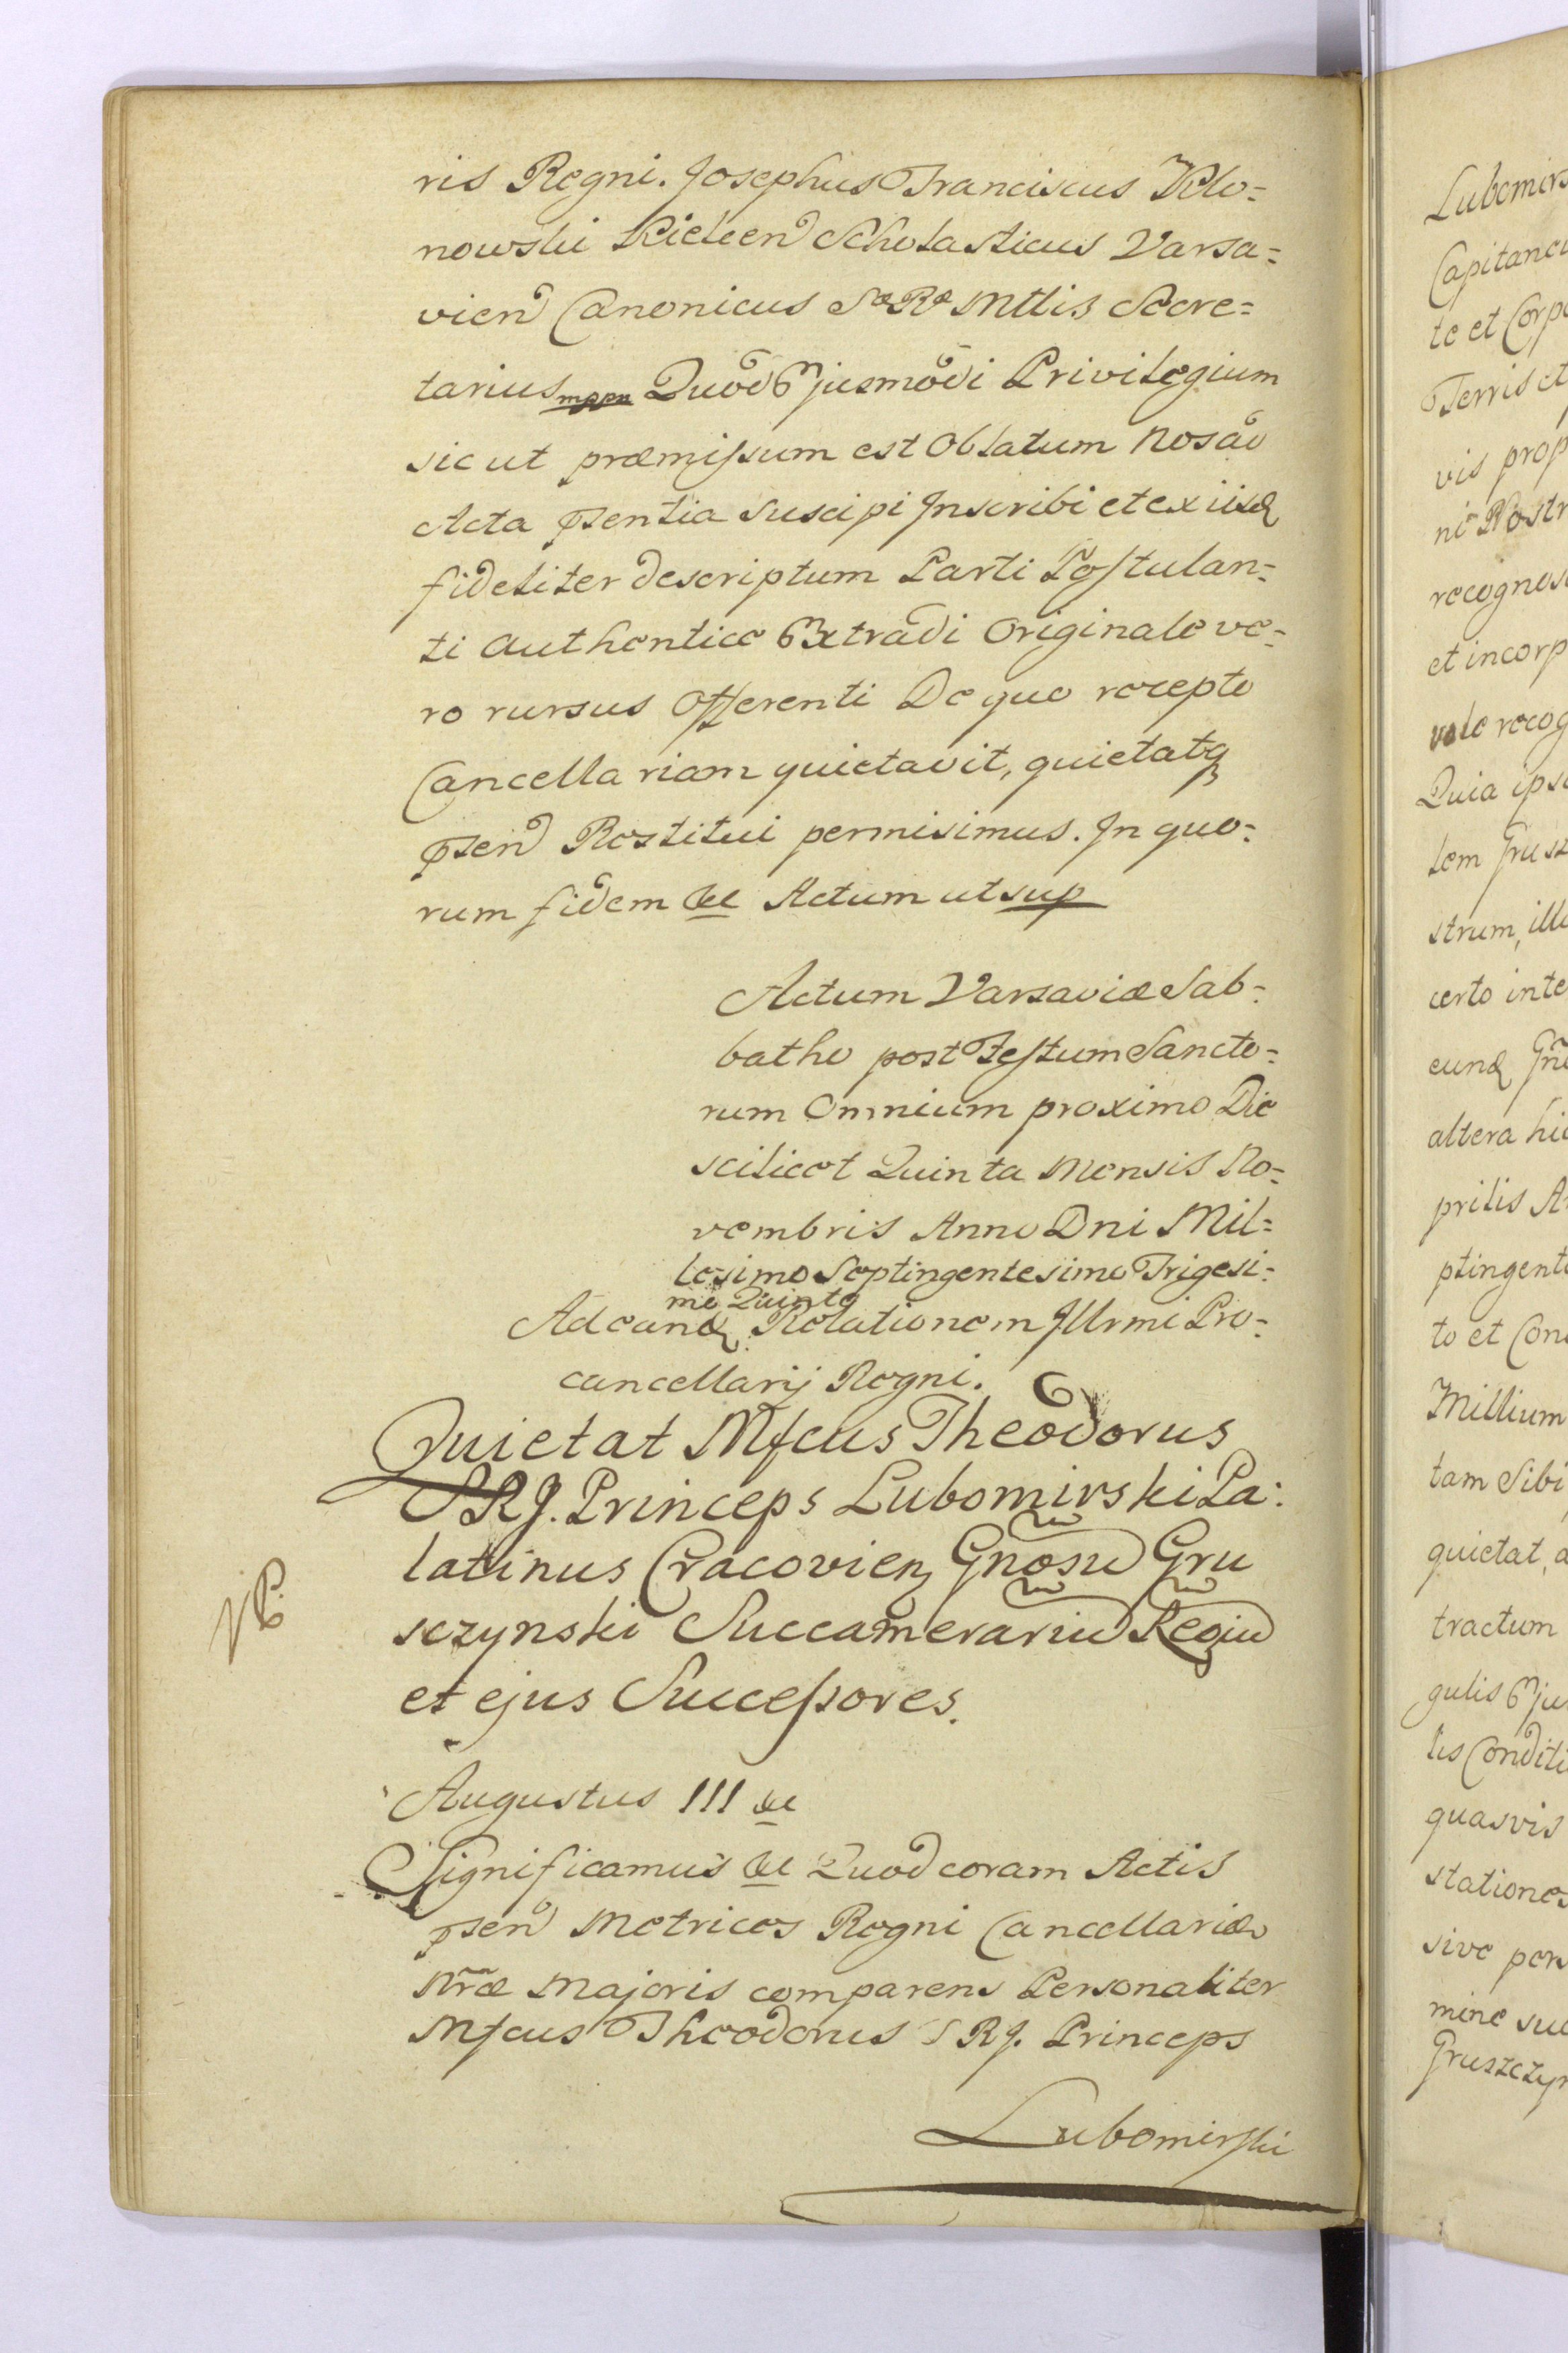 ris Regni. Josephus Franciscus Kło=
nowski Kielcen Scholasticus Varsa=
vien Canonicus Sæ Ræ Mttis Secre=
tarius mppa Quod Ejusmodi Privilegium
sicut præmissum est Oblatum Nos ad
Acta psentia Suscipi Inscribi et ex iisd
fideliter descriptum Parti Postulan=
ti authentice Extradi Originale ve=
ro rursus Offerenti De quo recepto
Cancellariam quietavit, quietatq
psen Restitui permisimus. In quo=
rum fidem &c Actum ut sup
Actum Varsaviæ Sab=
batho post Festum Sancto=
rum Omnium proximo Die
scilicet Quinta Mensis No=
vembris Anno Dni Mil=
lesimo Septingentesimo Trigesi=
mo Quinto
Ad eand Relationem Illrmi Pro=
cancellarij Regni.
Quietat Mfcus Theodorus
S R J. Princeps Lubomirski Pa:
latinus Cracovien Gnosu Gru
sczynski Succamerariu Regiu
et ejus Successores.
NB.
Augustus III &c
Significamus &c Quod coram Actis
psen Metrices Regni Cancellariæ
Nræ Majoris comparens Personaliter
Mfcus Theodorus S R J. Princeps
Lubomirski
Lubomirs
Capitaneu
te et Corpo
Terris et
vis prop
ni Nostr
recognos
et incorp
vole recog
Quia ipse
lem Grusz
strum, illu
certo inte
eund Gn
altera hic
prilis A
ptingente
to et Con
Millium
tam Sibi
quietat, a
tractum
gulis Eju
lis Conditi
quasvis
stationes
sive per
mine su
Gruszczyn